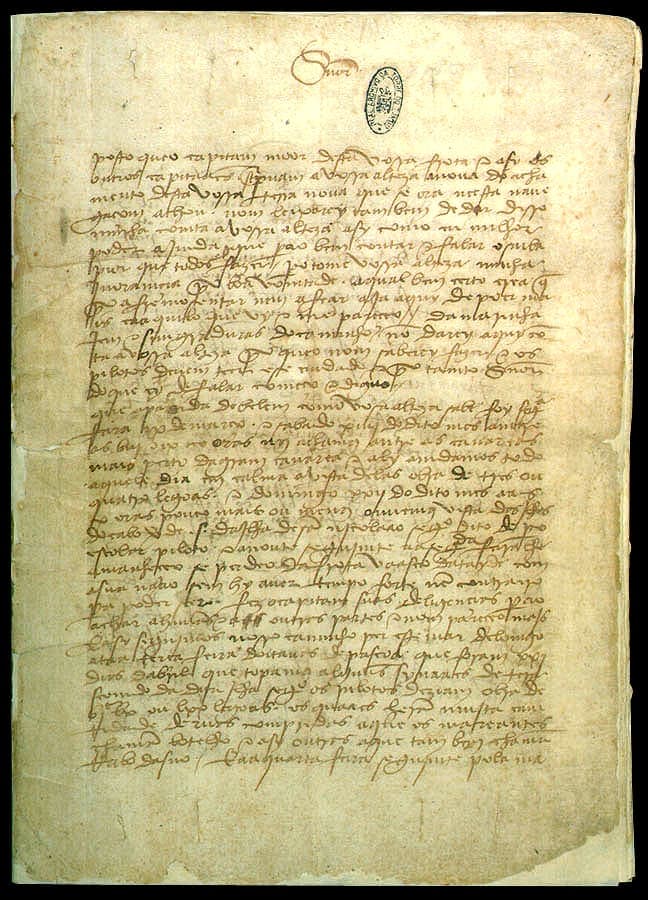 Snõr
posto que o capitam moor desta vossa frota e asy os
outros capitaães screpuam a vossa alteza a noua do acha
mento desta vossa terra noua que se ora neesta naue
gaçom achou, nom leixarey tambem de dar disso
minha comta a vossa alteza asy como eu milhor
poder ajmda que pera o bem contar e falar o saiba
pior que todos fazer / pero tome vossa alteza minha
jnoramçia por boa vomtade. a qual bem certo crea q̃
por afremosentar nem afear aja aquy de poer ma
is ca aquilo que vy e me pareceo / da marinha
jem e simgraduras do caminho nõ darey aquy cõ
ta a vossa alteza porque o nom saberey fazer e os
pilotos deuem teer ese cuidado e por tanto Snõr
do que ey de falar começo e diguo /
que a partida de belem como vosa alteza sabe foy segª
feira ix de março. e sabado xiiij do dito mes amtre
as biij e ix oras nos achamos antre as canareas
mais perto da gram canarea e aly amdamos todo
aquele dia em calma a vista delas obra de tres ou
quatro legoas. e domingo xxij do dito mes aas
x oras pouco mais ou menos ouuemos vista das jlhas
do cabo verde. s. da jlha de sã njcolaao segº dito de pº
escolar piloto. e a noute segujmte aa segda feira lhe
amanheceo se perdeo da frota vaasco datayde com
a sua naao sem hy auer tempo forte nẽ contrairo
pera poder seer. fez o capitam suas deligençias pera o
achar a huũas e outras partes e nom pareceo mais
E asy segujmos nosso caminho per este mar de lomgo
ataa terça feira doitauas de pascoa que foram xxj
dias dabril que topamos alguũs synaaes de tera
seemdo da dita jlha segº os pilotos deziam obra de
bjc lx ou lxx legoas. os quaaes herã mujta cam
tidade deruas compridas a que os mareantes
chamã botelho e asy outras a que tam bem chamã
rrabo dasno / E aa quarta feira segujmte pola ma